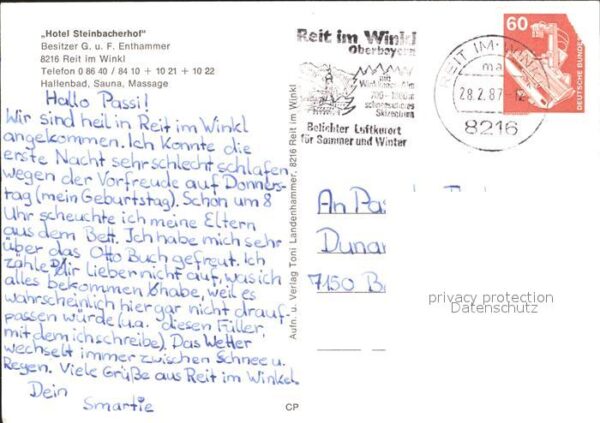 „Hotel Steinbacherhof"
Besitzer G. u. F. Enthammer
8216 Reit im Winkl
Telefon 0 86 40 / 84 10 + 10 21 + 10 22
Hallenbad, Sauna, Massage
Hallo Passi!
Wir sind heil in Reit im Winkl
angekommen. Ich konnte die
erste Nacht sehr schlecht schlafen
wegen der Vorfreude auf Donners-
tag (mein Geburtstag). Schon um 8
Uhr scheuchte ich meine Eltern
aus dem Bett. Ich habe mich sehr
über das Otto Buch gefreut. Ich
zähle Dir lieber nicht auf, was ich
alles bekommen habe, weil es
wahrscheinlich hier gar nicht drauf-
passen würde (u.a. diesen Füller,
mit dem ich schreibe). Das Wetter
wechselt immer zwischen Schnee u.
Regen. Viele Grüße aus Reit im Winkel
Dein
Smartie
Aufn. u. Verlag Toni Landenhammer, 8216 Reit im Winkl
CP
Reit im Winkl
Oberbayern
Beliebter Luftkurort
für Sommer und Winter
REIT IM WINKL
28.2.87-12
8216
60
DEUTSCHE BUNDES
An Pa
Dunan
7150 Ba
privacy protection
Datenschutz